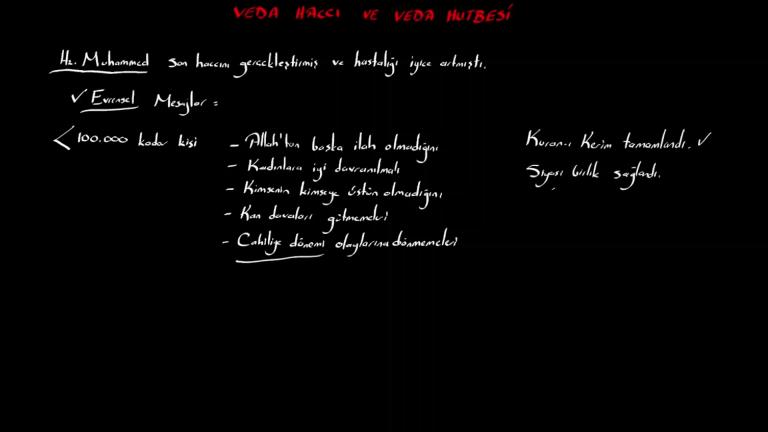 VEDA HACCI VE VEDA HUTBESİ
Hz. Muhammed son haccını gerçekleştirmiş ve hastalığı iyice artmıştı.
✓ Evrensel Mesajlar :
< 100.000 kadar kişi
- Allah'tan başka ilah olmadığını
- Kadınlara iyi davranılmalı
- Kimsenin kimseye üstün olmadığını
- Kan davaları gütmemeleri
- Cahiliye dönemi olaylarına dönmemeleri
Kuran-ı Kerim tamamlandı. ✓
Siyasi birlik sağlandı.